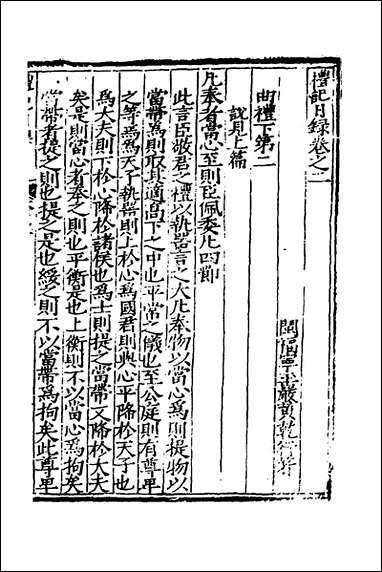 禮記日録卷之二
閩福寧主嚴黃乾行
曲禮下第二
說見上篇
凡奉者當心至則臣佩委凡四節
此言臣敬君之禮以執器言之大凡奉物以當心為則提物以
當帶為則取其適高下之中也平常之儀也至公庭則有尊卑
之等焉為天子執器則上於心為國君則與心平降於天子也
為大夫則下於心降於諸侯也為士則提之當帶又降於大夫
矣是則當心者奉之則也平衡是也上衡則不以當心為拘矣
當帶者提之則也提之是也綏之則不以當帶為拘矣此尊卑